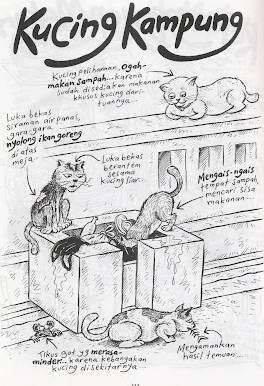 Kucing Kampung
Kucing peliharaan. Ogah-
makan sampah... karena
sudah disediakan makanan
khusus kucing dari
tuannya...
Luka bekas
siraman air panas,
gara-gara
nyolong ikan goreng
di atas
meja.
Luka bekas
berantem
sesama
kucing liar...
Mengais-ngais
tempat sampah,
mencari sisa
makanan...
Tikus got yg merasa-
minder... karena kebanyakan
kucing di sekitarnya...
Mengamankan
hasil temuan...